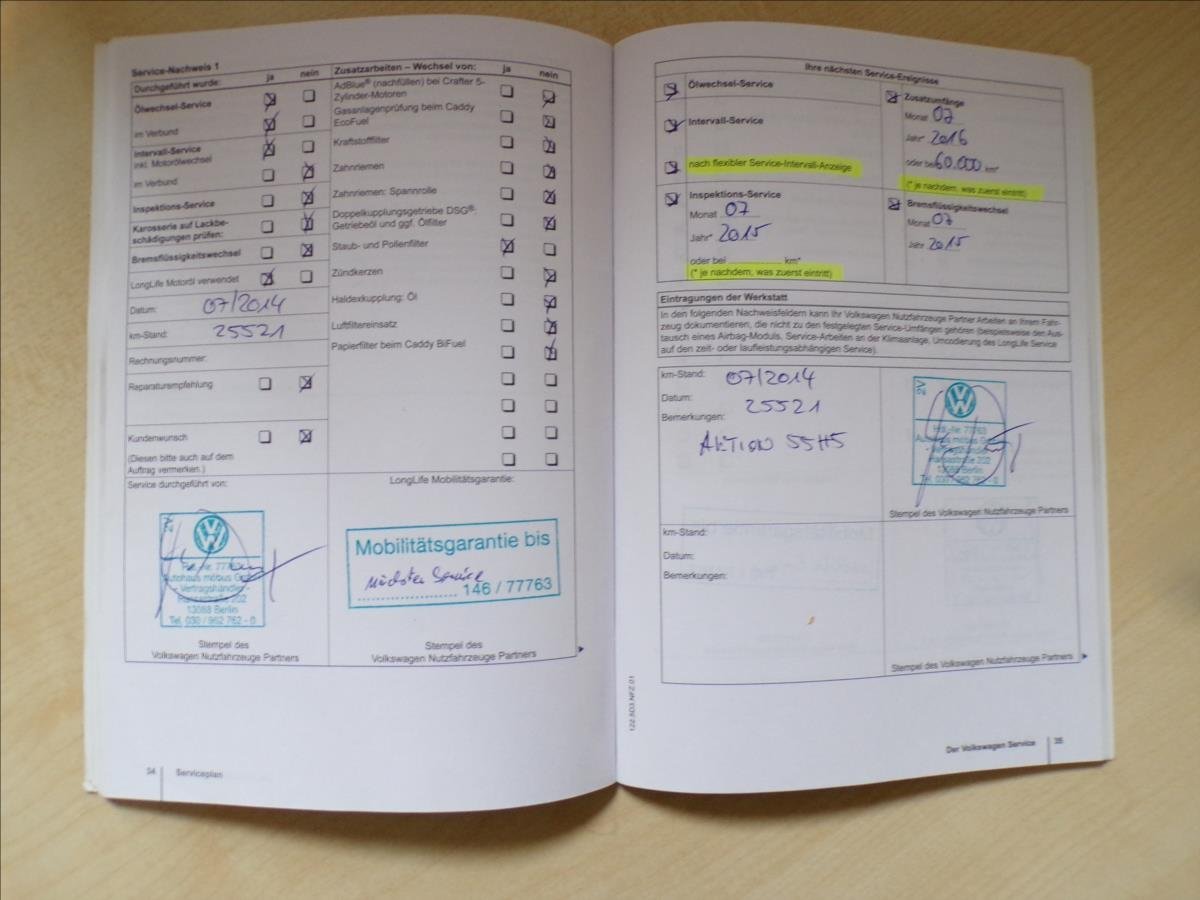 Service-Nachweis 1
Durchgeführt wurde: ja nein
Ölwechsel-Service
im Verbund
Intervall-Service
inkl. Motorölwechsel
im Verbund
Inspektions-Service
Karosserie auf Lackbe-
schädigungen prüfen:
Bremsflüssigkeitswechsel
LongLife Motoröl verwendet
Datum: 07/2014
km-Stand: 25521
Rechnungsnummer:
Reparaturempfehlung
Kundenwunsch
(Diesen bitte auch auf dem
Auftrag vermerken.)
Service durchgeführt von:
77763
Autohaus möbus
- Vertragshändler -
Hansastraße 202
13088 Berlin
Tel. 030 / 962 762 - 0
Stempel des
Volkswagen Nutzfahrzeuge Partners
Zusatzarbeiten – Wechsel von: ja nein
AdBlue® (nachfüllen) bei Crafter 5-
Zylinder-Motoren
Gasanlagenprüfung beim Caddy
EcoFuel
Kraftstofffilter
Zahnriemen
Zahnriemen: Spannrolle
Doppelkupplungsgetriebe DSG®:
Getriebeöl und ggf. Ölfilter
Staub- und Pollenfilter
Zündkerzen
Haldexkupplung: Öl
Luftfiltereinsatz
Papierfilter beim Caddy BiFuel
LongLife Mobilitätsgarantie:
Mobilitätsgarantie bis
nächster Service
146 / 77763
Stempel des
Volkswagen Nutzfahrzeuge Partners
34 Serviceplan
Ihre nächsten Service-Ereignisse
Ölwechsel-Service
Intervall-Service
nach flexibler Service-Intervall-Anzeige
Inspektions-Service
Monat 07
Jahr* 2015
oder bei km*
(* je nachdem, was zuerst eintritt)
Zusatzumfänge
Monat 07
Jahr* 2016
oder bei 60.000 km*
(* je nachdem, was zuerst eintritt)
Bremsflüssigkeitswechsel
Monat 07
Jahr 2015
Eintragungen der Werkstatt
In den folgenden Nachweisfeldern kann Ihr Volkswagen Nutzfahrzeuge Partner Arbeiten an Ihrem Fahr-
zeug dokumentieren, die nicht zu den festgelegten Service-Umfängen gehören (beispielsweise den Aus-
tausch eines Airbag-Moduls, Service-Arbeiten an der Klimaanlage, Umcodierung des LongLife Service
auf den zeit- oder laufleistungsabhängigen Service).
km-Stand: 07/2014
Datum: 25521
Bemerkungen:
AKTION 55H5
2V
Hdl.-Nr. 77763
Autohaus möbus
- Vertragshändler
Hansastraße 202
13088 Berlin
Tel. 030 / 962 762 - 0
Stempel des Volkswagen Nutzfahrzeuge Partners
km-Stand:
Datum:
Bemerkungen:
Stempel des Volkswagen Nutzfahrzeuge Partners
122.5D3.NFZ.01
Der Volkswagen Service 35